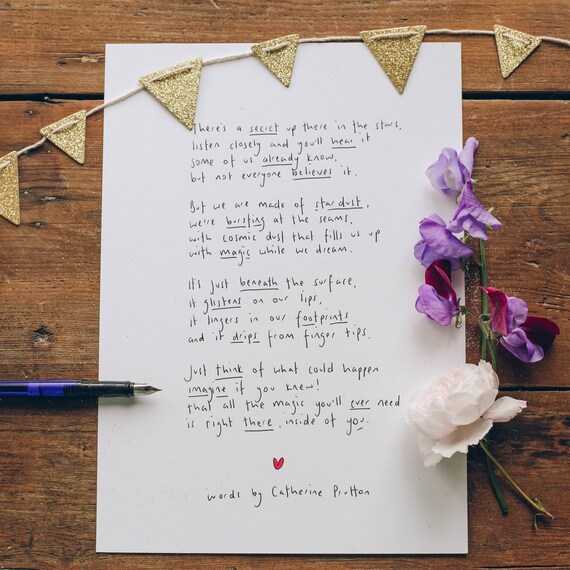 There's a secret up there in the stars,
listen closely and you'll hear it
some of us already know,
but not everyone believes it.
But we are made of stardust,
we're bursting at the seams,
with cosmic dust that fills us up
with magic while we dream.
It's just beneath the surface,
it glistens on our lips,
it lingers in our footprints
and it drips from finger tips.
Just think of what could happen
imagine if you knew!
that all the magic you'll ever need
is right there, inside of you.
words by Catherine Prutton